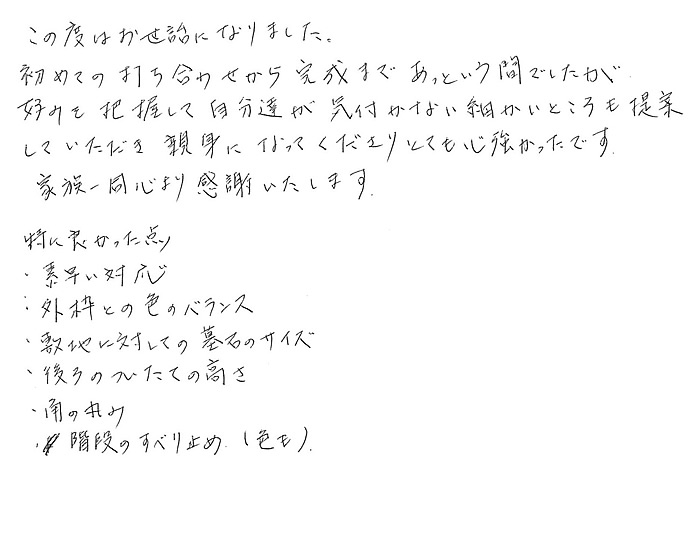 この度はお世話になりました。
初めての打ち合わせから完成まであっという間でしたが
好みを把握して自分達が気付かない細かいところも提案
していただき親身になってくださりとても心強かったです。
家族一同心より感謝いたします。
特に良かった点
・素早い対応
・外枠との色のバランス
・敷地に対しての墓石のサイズ
・後ろのついたての高さ
・角の丸み
・階段のすべり止め（色も）.